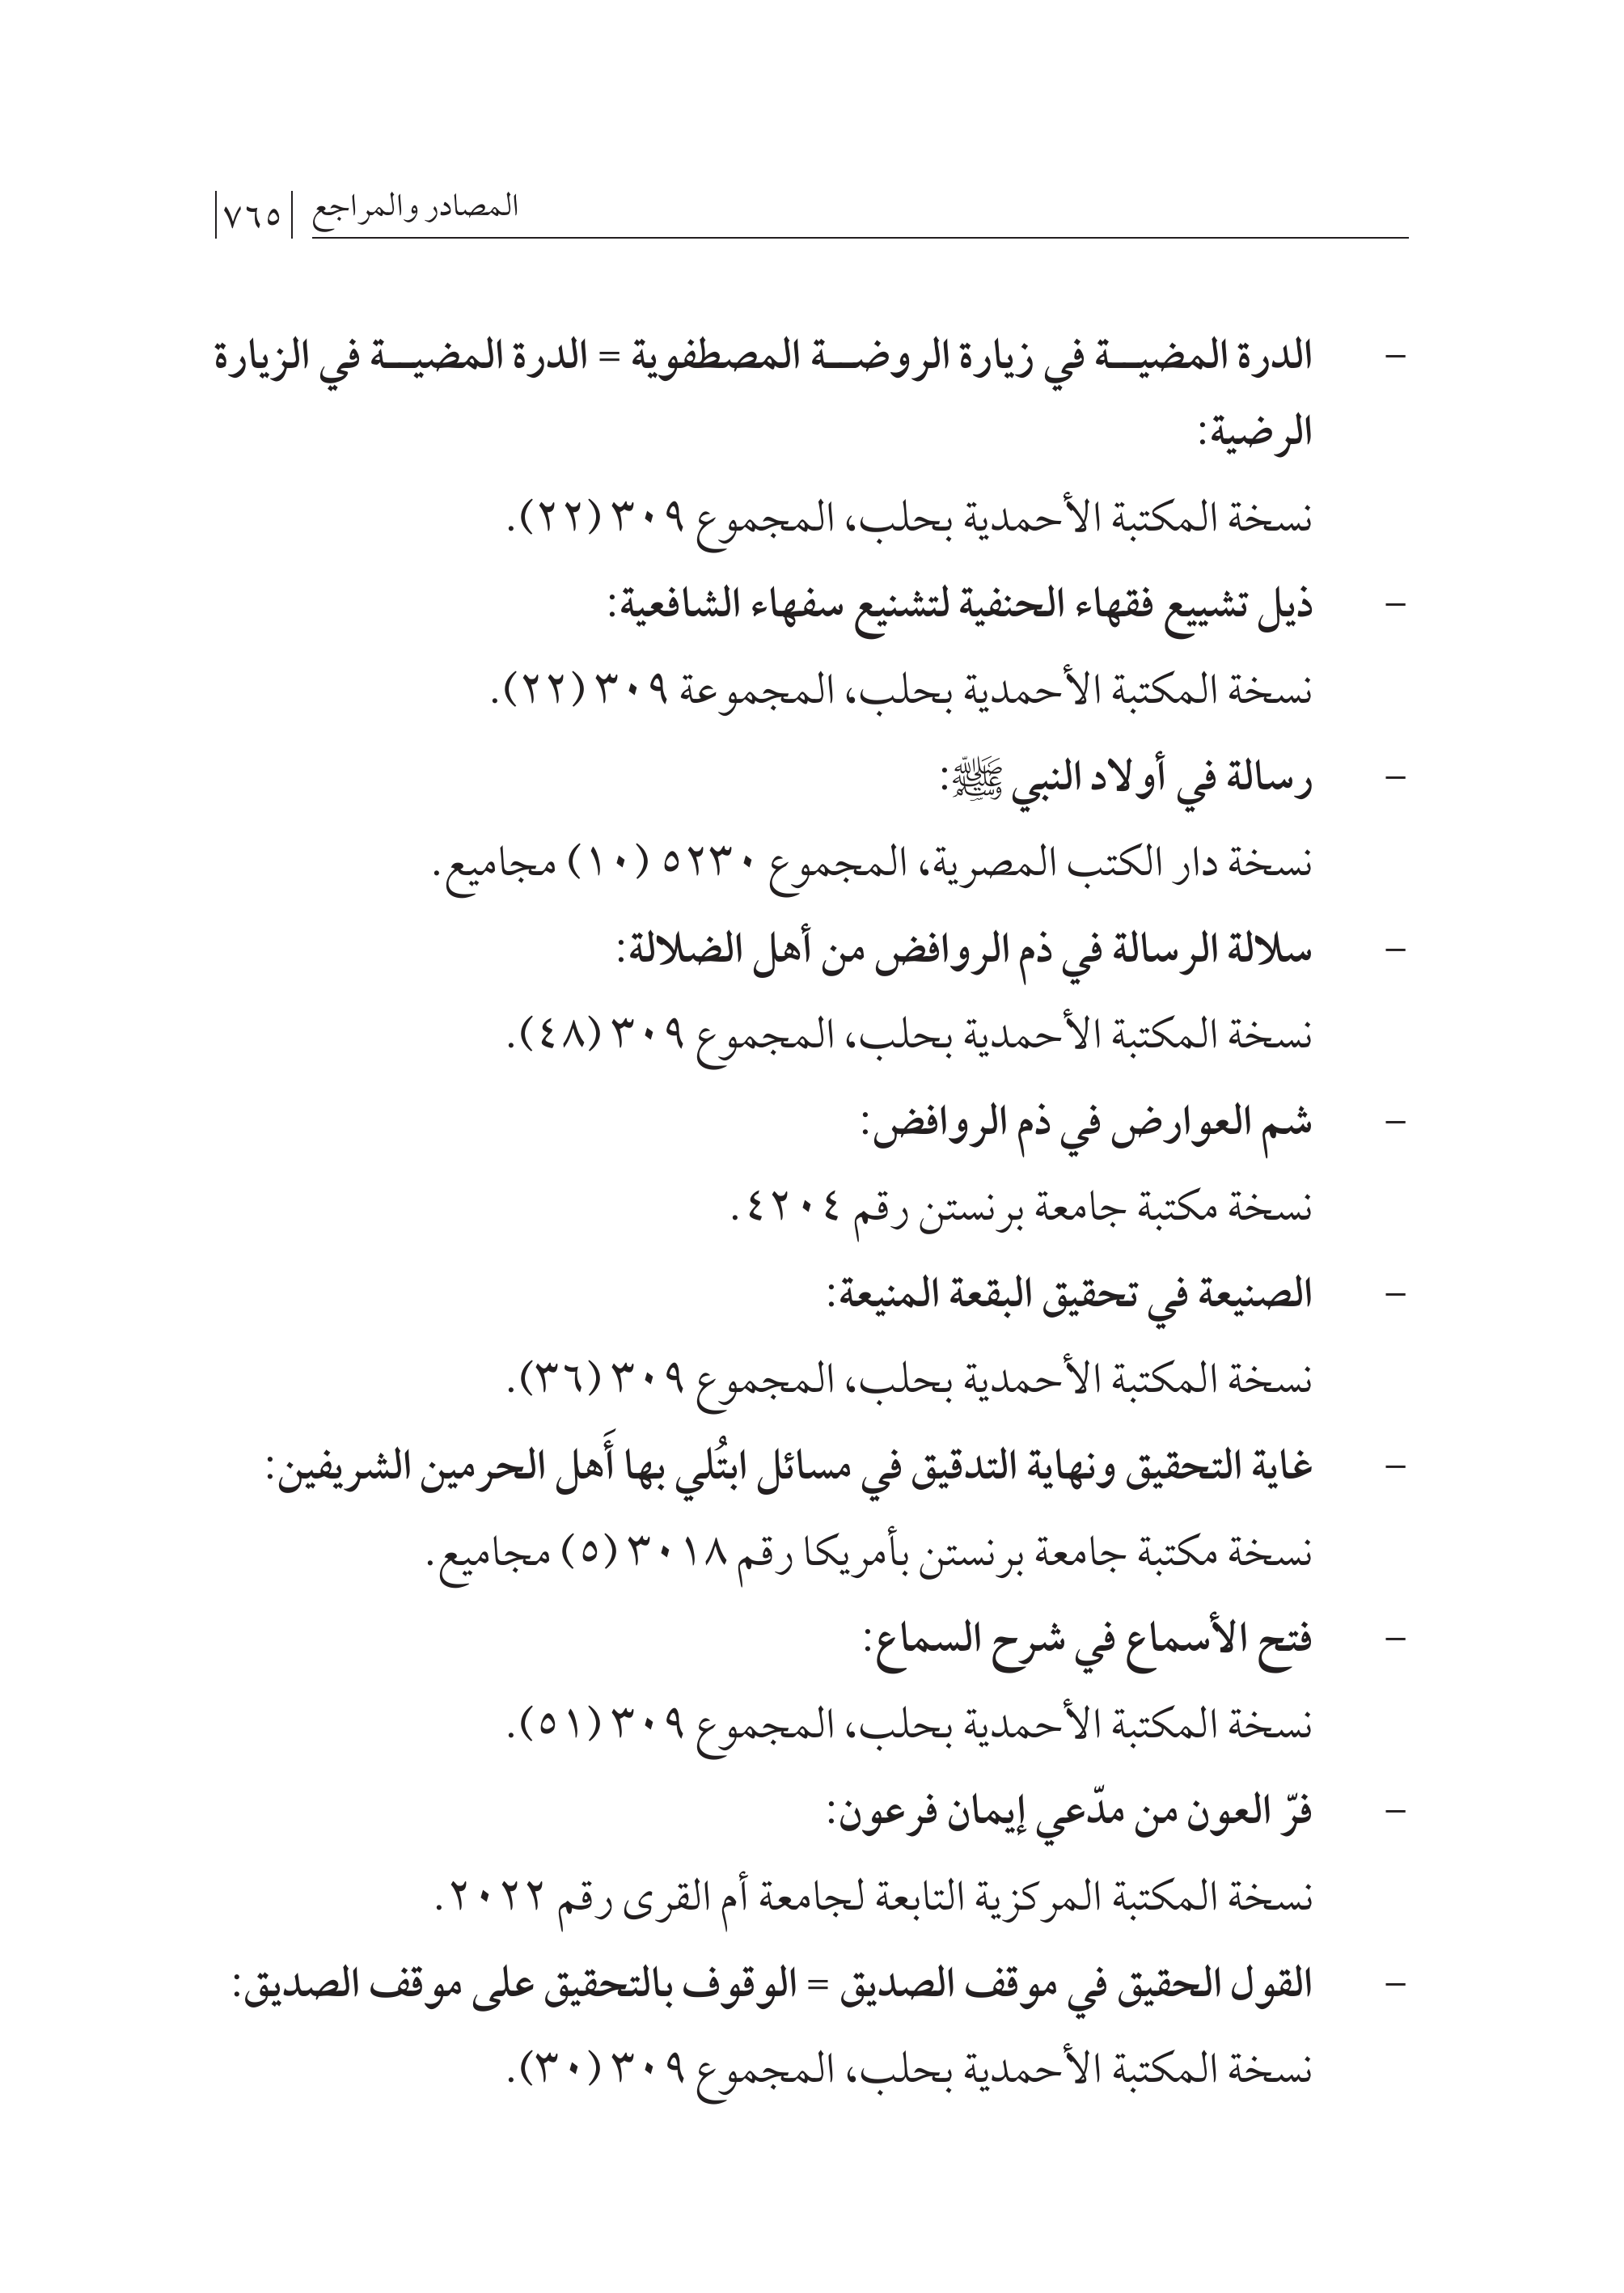 المصادر والمراجع ٧٦٥
– الدرة المضيـــة في زيارة الروضـــة المصطفوية = الدرة المضيـــة في الزيارة
الرضية:
نسخة المكتبة الأحمدية بحلب، المجموع ٣٠٩ (٢٢).
– ذيل تشييع فقهاء الحنفية لتشنيع سفهاء الشافعية:
نسخة المكتبة الأحمدية بحلب، المجموعة ٣٠٩ (٢٢).
– رسالة في أولاد النبي ﷺ:
نسخة دار الكتب المصرية، المجموع ٥٢٣٠ (١٠) مجاميع.
– سلالة الرسالة في ذم الروافض من أهل الضلالة:
نسخة المكتبة الأحمدية بحلب، المجموع ٣٠٩ (٤٨).
– شم العوارض في ذم الروافض:
نسخة مكتبة جامعة برنستن رقم ٤٢٠٤.
– الصنيعة في تحقيق البقعة المنيعة:
نسخة المكتبة الأحمدية بحلب، المجموع ٣٠٩ (٣٦).
– غاية التحقيق ونهاية التدقيق في مسائل ابتُلي بها أَهل الحرمين الشريفين:
نسخة مكتبة جامعة برنستن بأمريكا رقم ٣٠١٨ (٥) مجاميع.
– فتح الأسماع في شرح السماع:
نسخة المكتبة الأحمدية بحلب، المجموع ٣٠٩ (٥١).
– فرّ العون من مدّعي إيمان فرعون:
نسخة المكتبة المركزية التابعة لجامعة أم القرى رقم ٢٠٢٢.
– القول الحقيق في موقف الصديق = الوقوف بالتحقيق على موقف الصديق:
نسخة المكتبة الأحمدية بحلب، المجموع ٣٠٩ (٣٠).